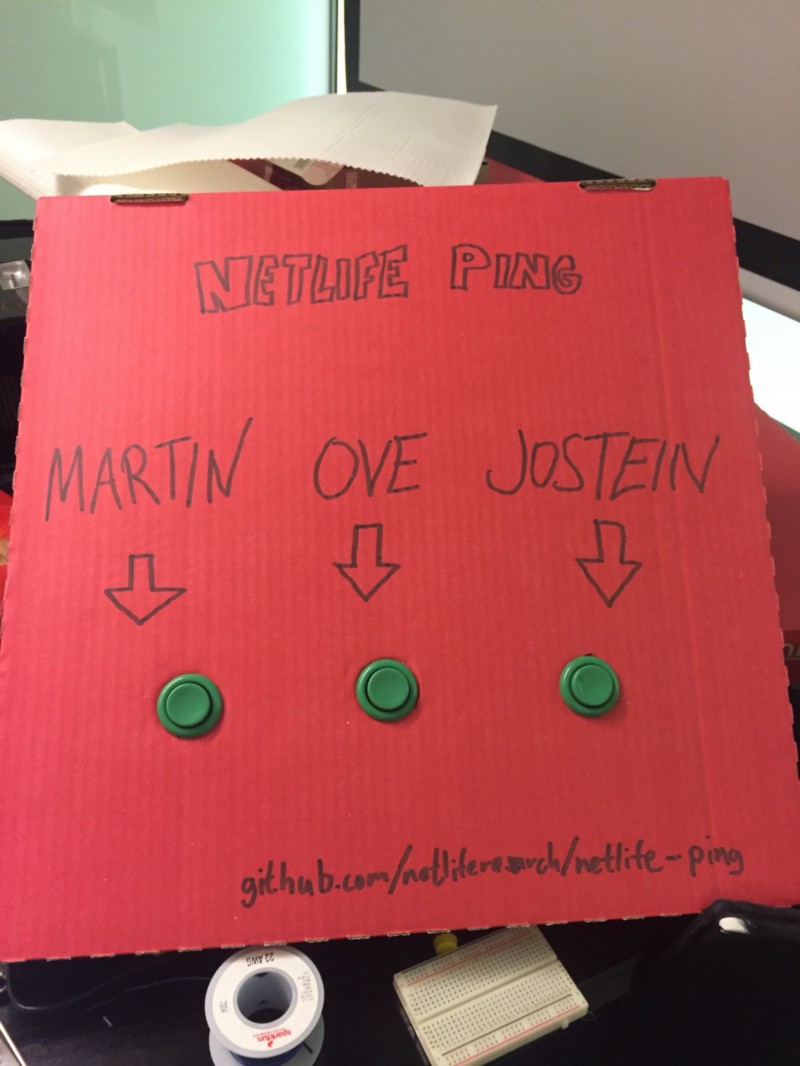 NETLIFE PING
MARTIN OVE JOSTEIN
github.com/netliferesearch/netlife-ping
22 AWG
sparkfun